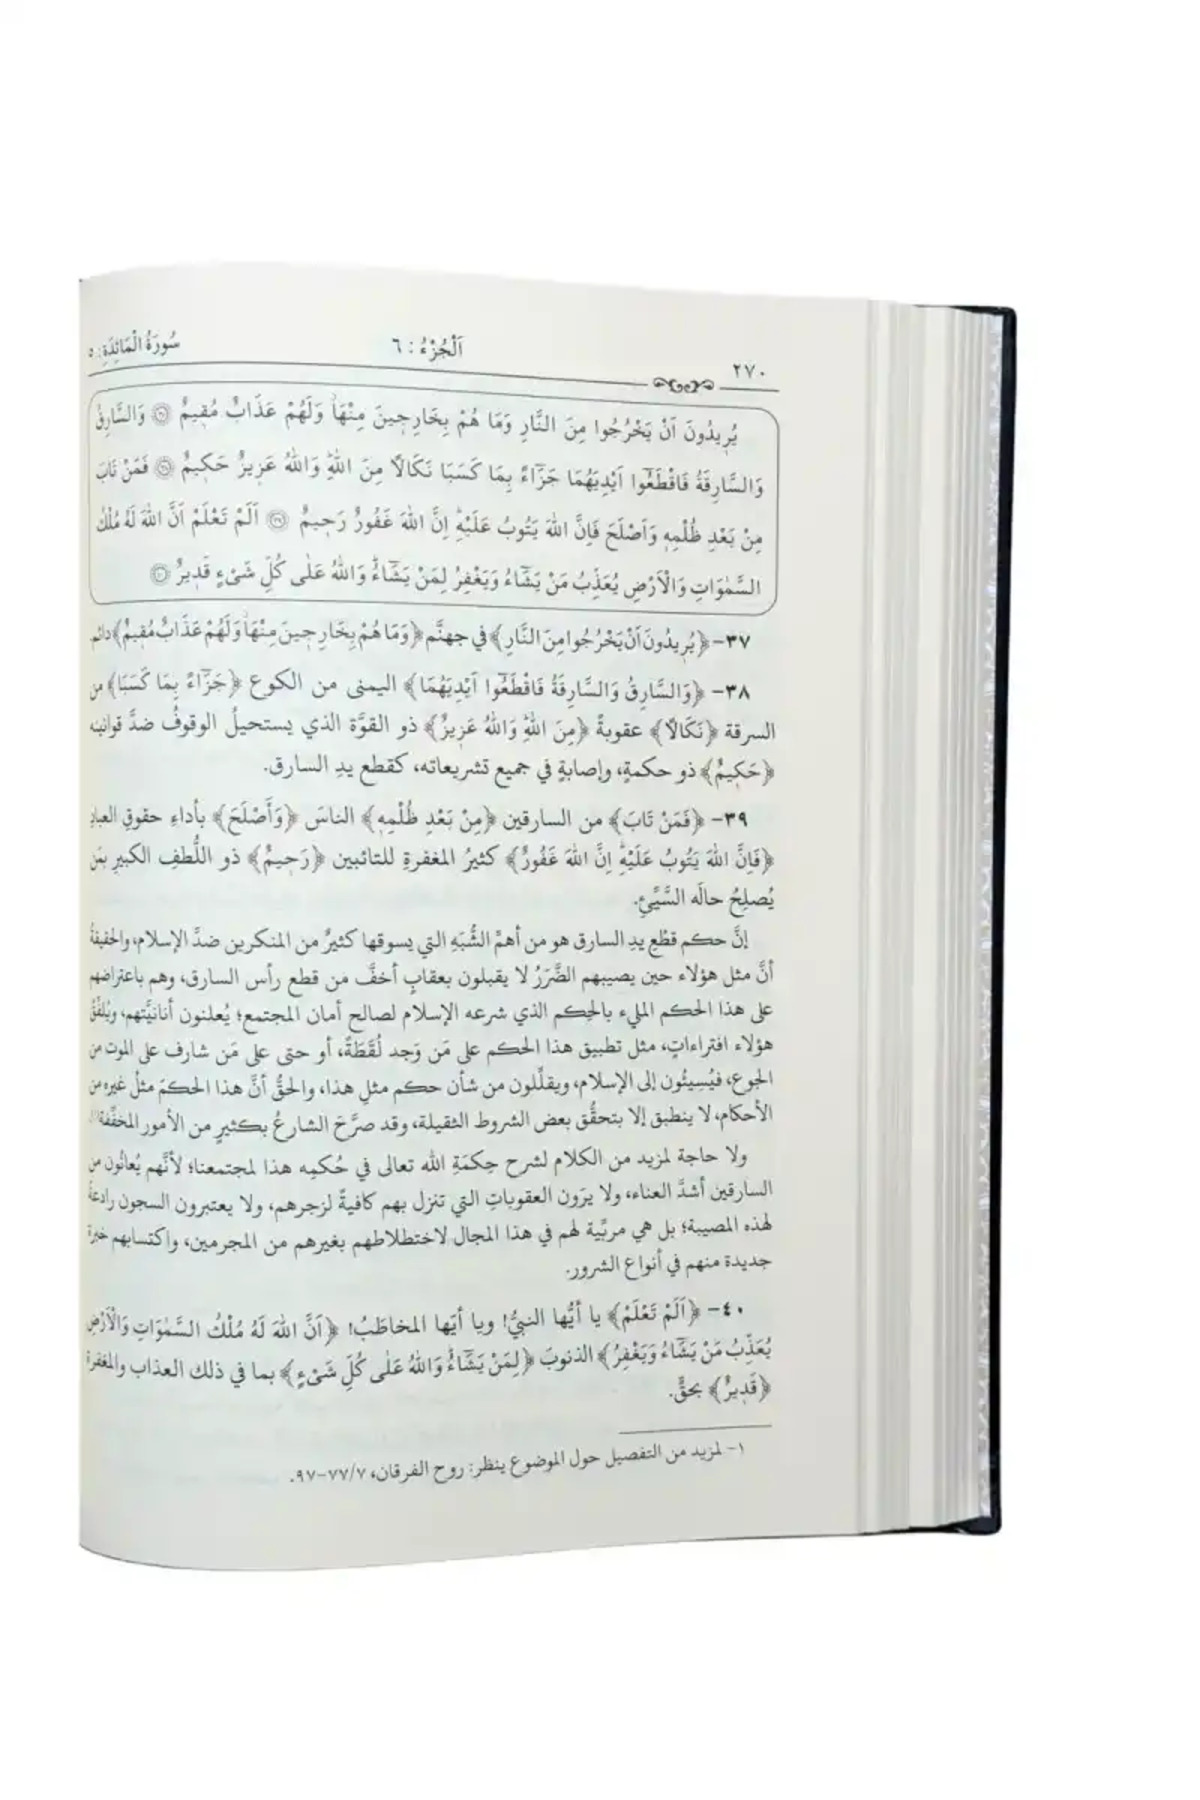 ٢٧٠ اَلْجُزْءُ : ٦ سُورَةُ الْمَائِدَةِ: ٥
يُرٖيدُونَ اَنْ يَخْرُجُوا مِنَ النَّارِ وَمَا هُمْ بِخَارِجٖينَ مِنْهَاۘ وَلَهُمْ عَذَابٌ مُقٖيمٌ ۝ وَالسَّارِقُ
وَالسَّارِقَةُ فَاقْطَعُٓوا اَيْدِيَهُمَا جَزَٓاءً بِمَا كَسَبَا نَكَالًا مِنَ اللّٰهِؕ وَاللّٰهُ عَزٖيزٌ حَكٖيمٌ ۝ فَمَنْ تَابَ
مِنْ بَعْدِ ظُلْمِهٖ وَاَصْلَحَ فَاِنَّ اللّٰهَ يَتُوبُ عَلَيْهِؕ اِنَّ اللّٰهَ غَفُورٌ رَحٖيمٌ ۝ اَلَمْ تَعْلَمْ اَنَّ اللّٰهَ لَهُ مُلْكُ
السَّمٰوَاتِ وَالْاَرْضِ يُعَذِّبُ مَنْ يَشَٓاءُ وَيَغْفِرُ لِمَنْ يَشَٓاءُؕ وَاللّٰهُ عَلٰى كُلِّ شَیْءٍ قَدٖيرٌ ۝
٣٧- ﴿يُرٖيدُونَ اَنْ يَخْرُجُوا مِنَ النَّارِ﴾ في جهنَّم ﴿وَمَا هُمْ بِخَارِجٖينَ مِنْهَاۘ وَلَهُمْ عَذَابٌ مُقٖيمٌ﴾ دائم.
٣٨- ﴿وَالسَّارِقُ وَالسَّارِقَةُ فَاقْطَعُٓوا اَيْدِيَهُمَا﴾ اليمنى من الكوع ﴿جَزَٓاءً بِمَا كَسَبَا﴾ من
السرقة ﴿نَكَالًا﴾ عقوبةً ﴿مِنَ اللّٰهِؕ وَاللّٰهُ عَزٖيزٌ﴾ ذو القوَّة الذي يستحيلُ الوقوفُ ضدَّ قوانينه
﴿حَكٖيمٌ﴾ ذو حكمةٍ، وإصابةٍ في جميع تشريعاته، كقطع يدِ السارق.
٣٩- ﴿فَمَنْ تَابَ﴾ من السارقين ﴿مِنْ بَعْدِ ظُلْمِهٖ﴾ الناسَ ﴿وَأَصْلَحَ﴾ بأداءِ حقوقِ العبادِ
﴿فَاِنَّ اللّٰهَ يَتُوبُ عَلَيْهِؕ اِنَّ اللّٰهَ غَفُورٌ﴾ كثيرُ المغفرةِ للتائبين ﴿رَحٖيمٌ﴾ ذو اللُّطفِ الكبيرِ بمَن
يُصلِحُ حالَه السَّيِّئَ.
إنَّ حكم قطْعِ يدِ السارق هو من أهمِّ الشُّبَهِ التي يسوقها كثيرٌ من المنكرين ضدَّ الإسلام، والحقيقةُ
أنَّ مثل هؤلاء حين يصيبهم الضَّرَرُ لا يقبلون بعقابٍ أخفَّ من قطع رأس السارق، وهم باعتراضهم
على هذا الحكم المليء بالحِكم الذي شرعه الإسلام لصالح أمان المجتمع؛ يُعلنون أنانيَّتهم، ويُلفِّقُ
هؤلاء افتراءاتٍ، مثل تطبيق هذا الحكم على مَن وَجد لُقَطَةً، أو حتى على مَن شارف على الموت من
الجوع، فيُسِيئُون إلى الإسلام، ويقلِّلون من شأن حكم مثلِ هذا، والحقُّ أنَّ هذا الحكمَ مثلُ غيره من
الأحكام، لا ينطبق إلا بتحقُّق بعض الشروط الثقيلة، وقد صرَّحَ الشارعُ بكثيرٍ من الأمور المخفِّفة.
ولا حاجة لمزيد من الكلام لشرح حِكمَةِ الله تعالى في حُكمِه هذا لمجتمعنا؛ لأنَّهم يُعانُون من
السارقين أشدَّ العناء، ولا يرَون العقوباتِ التي تنزل بهم كافيةً لزجرهم، ولا يعتبرون السجون رادعةً
لهذه المصيبة؛ بل هي مربِّية لهم في هذا المجال لاختطلاطهم بغيرهم من المجرمين، واكتسابهم خبرة
جديدة منهم في أنواع الشرور.
٤٠- ﴿اَلَمْ تَعْلَمْ﴾ يا أيُّها النبيُّ! ويا أيّها المخاطَبُ! ﴿اَنَّ اللّٰهَ لَهُ مُلْكُ السَّمٰوَاتِ وَالْاَرْضِ
يُعَذِّبُ مَنْ يَشَٓاءُ وَيَغْفِرُ﴾ الذنوبَ ﴿لِمَنْ يَشَٓاءُؕ وَاللّٰهُ عَلٰى كُلِّ شَیْءٍ﴾ بما في ذلك العذاب والمغفرة
﴿قَدٖيرٌ﴾ بحقٍّ.
١- لمزيد من التفصيل حول الموضوع ينظر: روح الفرقان، ٧/٧٧-٩٧.